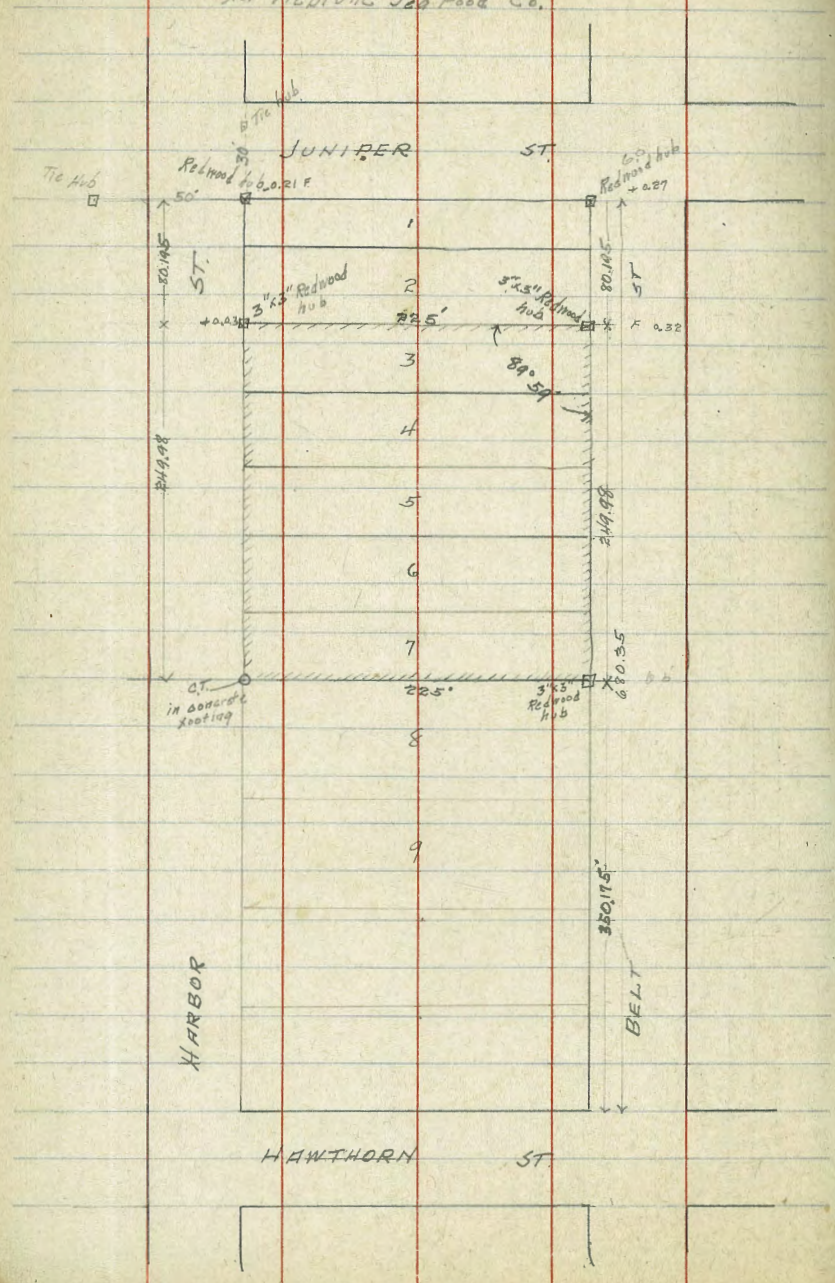 Sea Food Co.
Tie hub
30'
JUNIPER ST.
Tie Hub
50'
Redwood hub 0.21 F
Redwood hub
+0.27
1
80.195
ST.
2
80.195
ST
3"x3" Redwood
hub
3"x3" Redwood
hub
+0.03
225'
F 0.32
3
89° 59'
4
249.98
5
249.98
6
7
680.35
C.T.
in concrete
footing
225'
3"x3"
Redwood
hub
8
9
350.175'
HARBOR
BELT
HAWTHORN ST.